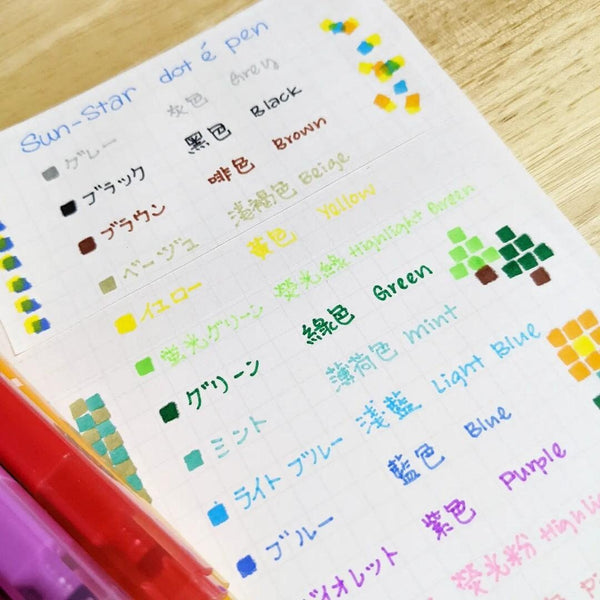 Sun-Star dot é pen
グレー 灰色 Grey
ブラック 黑色 Black
ブラウン 啡色 Brown
ベージュ 浅褐色 Beige
イエロー 黃色 Yellow
蛍光グリーン 熒光綠 Highlight Green
グリーン 綠色 Green
ミント 薄荷色 mint
ライト ブルー 浅藍 Light Blue
ブルー 藍色 Blue
バイオレット 紫色 Purple
熒光粉